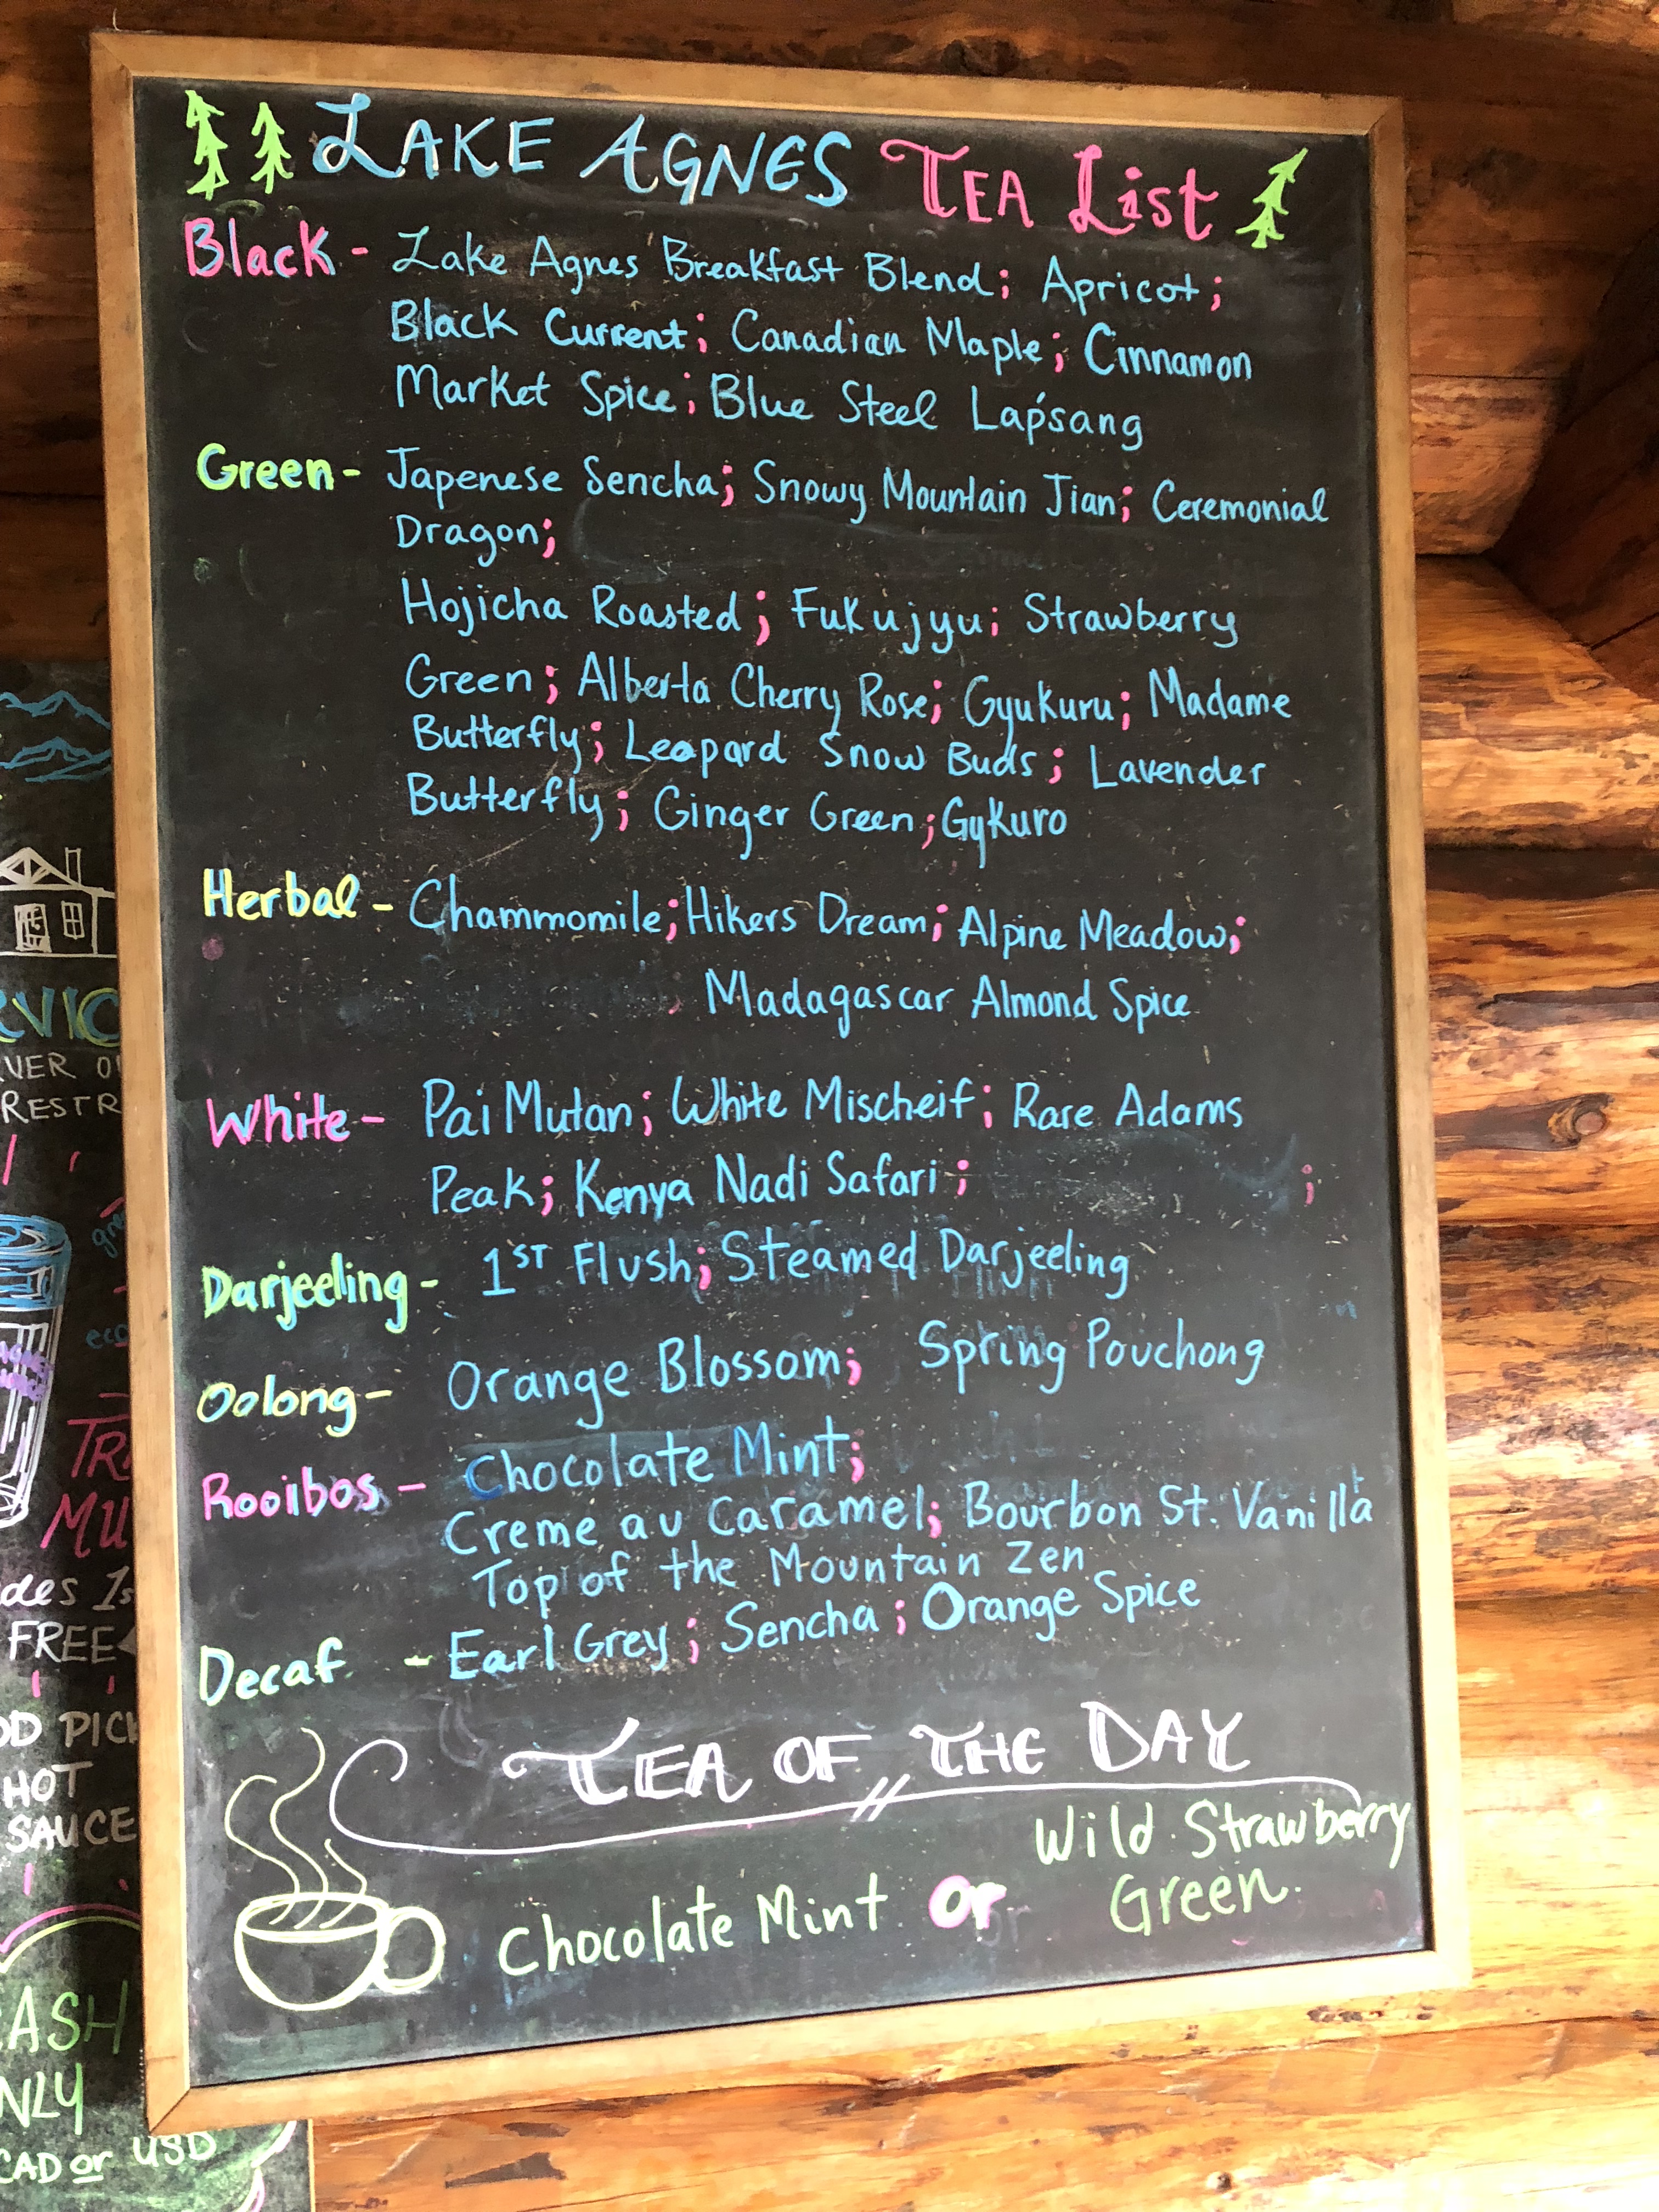 LAKE AGNES TEA List
Black - Lake Agnes Breakfast Blend; Apricot;
Black Current; Canadian Maple; Cinnamon
Market Spice; Blue Steel Lapsang
Green - Japenese Sencha; Snowy Mountain Jian; Ceremonial
Dragon;
Hojicha Roasted; Fukujyu; Strawberry
Green; Alberta Cherry Rose; Gyukuru; Madame
Butterfly; Leopard Snow Buds; Lavender
Butterfly; Ginger Green; Gykuro
Herbal - Chammomile; Hikers Dream; Alpine Meadow;
Madagascar Almond Spice
White - Pai Mutan; White Mischeif; Rare Adams
Peak; Kenya Nadi Safari; ;
Darjeeling - 1ST Flush; Steamed Darjeeling
Oolong - Orange Blossom; Spring Pouchong
Rooibos - Chocolate Mint;
Creme au Caramel; Bourbon St. Vanilla
Top of the Mountain Zen
Decaf - Earl Grey; Sencha; Orange Spice
TEA OF THE DAY
Chocolate Mint or Wild Strawberry
Green.
FREE
HOT
SAUCE
CAD or USD